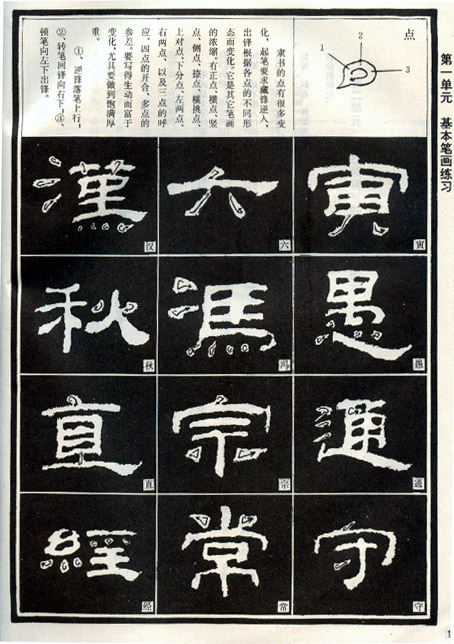 第一单元 基本笔画练习
点
1
2
3
隶书的点有很多变
化，起笔要求藏锋逆入，
出锋根据各点的不同形
态而变化。它是其它笔画
的浓缩。有正点、横点、竖
点、侧点、捺点、横挑点、
上对点、下分点、左两点、
右两点，以及三点的呼
应，四点的开合，多点的
参差。要写得生动而富于
变化，尤其要做到饱满厚
重。
①、逆锋落笔上行，
②、转笔回锋向右下，③、
顿笔向左下出锋。
寅
寅
六
六
漢
汉
愚
愚
馮
冯
秋
秋
通
通
宗
直
直
守
守
常
常
經
经
1